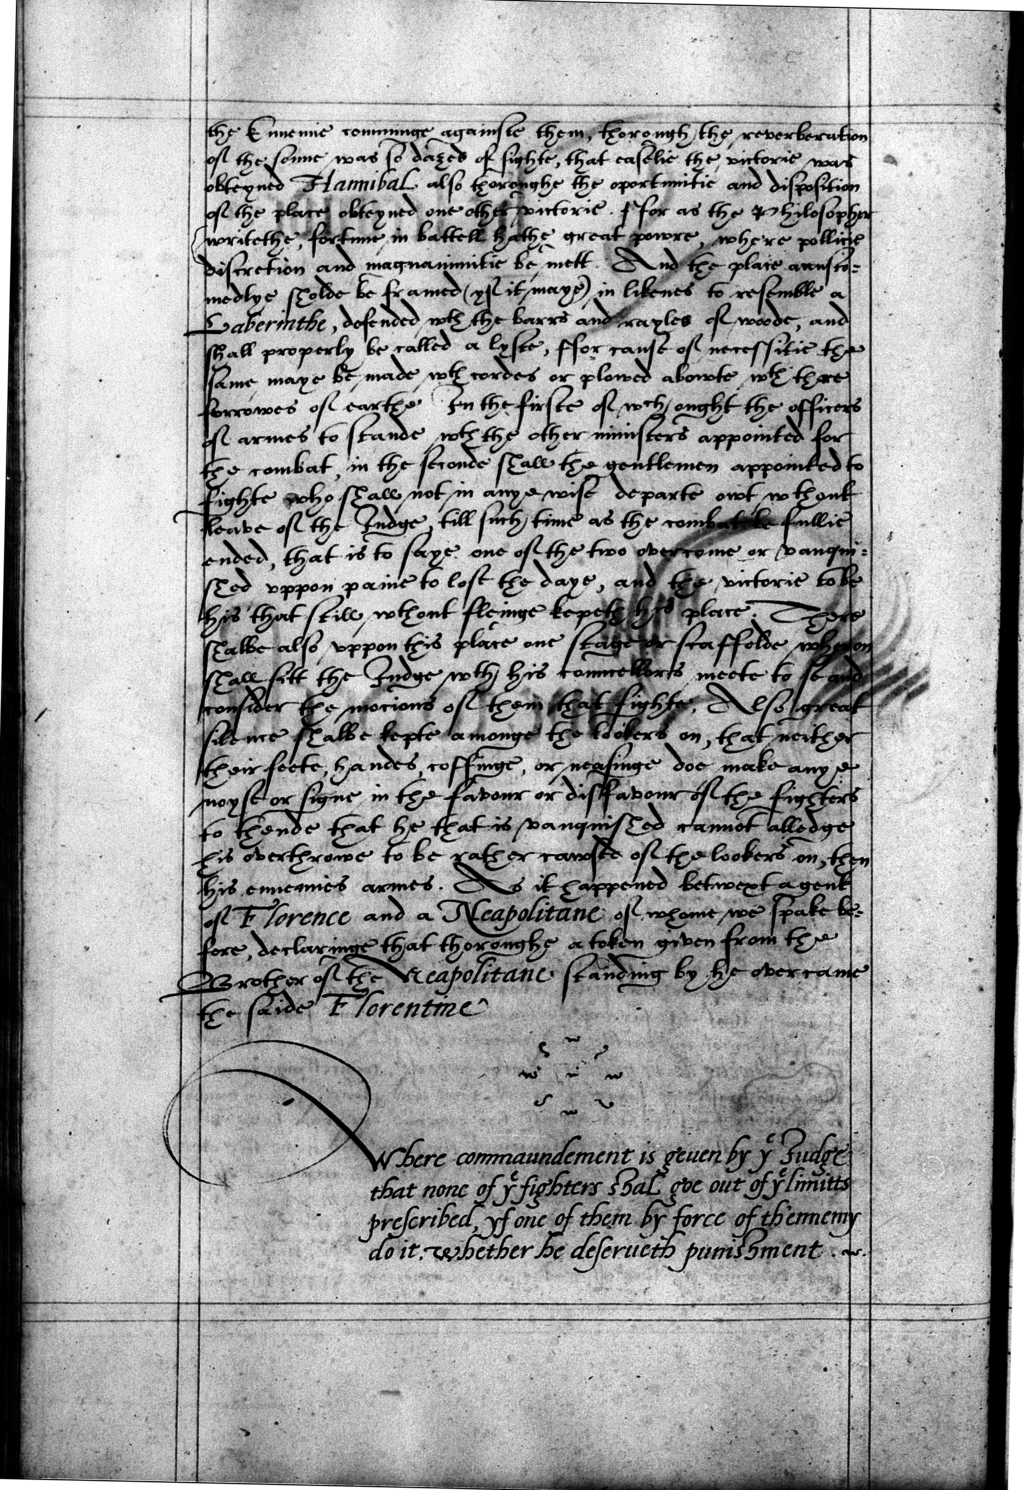 the Ennemie comminge againste them, thorough the reverberation
of the sonne was so dazed of sighte, that easelie the victorie was
obteyned Hannibal also thoroughe the oportunitie and disposition
of the place obteyned one other victorie. Ffor as the Philosopher
writethe, fortune in battell hathe great powre, where pollicie
discretion and magnanimitie be mett. And the place accusto-
medlye sholde be framed (yf it maye) in likenes to resemble a
Laberinthe, defended wth the barrs and rayles of woode, and
shall properly be called a lyste, ffor cause of necessitie the
same maye be made wth cordes or plowed abowte wth thre
forrowes of earthe In the firste of wch ought the officers
of armes to stande wth the other ministers appointed for
the combat, in the seconde shall the gentlemen appointed to
fighte who shall not in anye wise departe owt wthout
leave of the Judge, till such time as the combat be fullie
ended, that is to saye one of the two overcome or vanqui-
shed uppon paine to lose the daye, and the victorie to be
his that still wthout fleinge kepeth his place. There
shalbe also uppon this place one stage or scaffolde wheron
shall sitt the Judge wth his councellors meete to se and
consider the mocions of them that fighte. Also great
silence shalbe kepte amonge the lookers on, that neither
their feete, handes, coffinge, or neasinge doe make anye
noyse or signe in the favour or disfavour of the fighters
to thende that he that is vanquished cannot alledge
his overthrowe to be rather cawse of the lookers on, then
his ennemies armes. As it happened betwext a gent
of Florence and a Neapolitane of whome we spake be-
fore, declaringe that thoroughe a token given from the
Brother of the Neapolitane standing by he overcame
the saide Florentine
Where commaundement is geuen by ye Judge
that none of ye fighters shal goe out of ye limitts
prescribed, yf one of them by force of th'ennemy
do it. Whether he deserueth punishment.